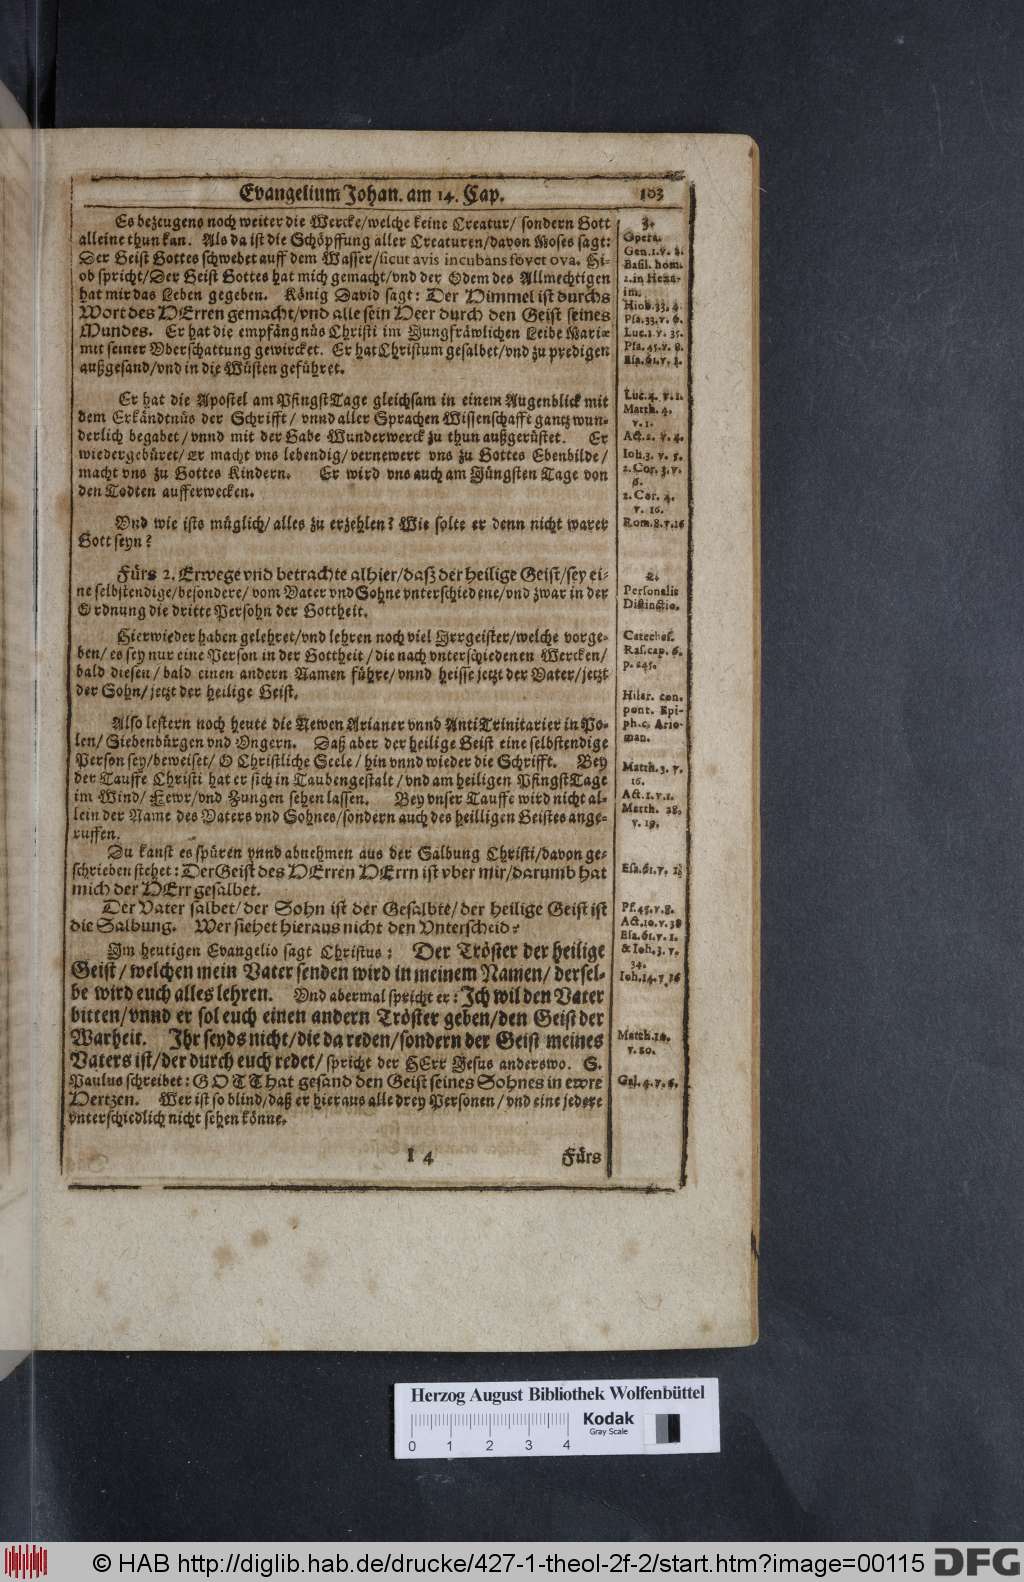 Evangelium Johan. am 14. Cap. 103
Es bezeugens noch weiter die Wercke/welche keine Creatur/ sondern Gott
alleine thun kan. Als da ist die Schöpffung aller Creaturen/davon Moses sagt:
Der Geist Gottes schwebet auff dem Wasser/sicut avis incubans fovet ova. Hi-
ob spricht/Der Geist Gottes hat mich gemacht/vnd der Odem des Allmechtigen
hat mir das Leben gegeben. König David sagt: Der Himmel ist durchs
Wort des HErren gemacht/vnd alle sein Heer durch den Geist seines
Mundes. Er hat die empfängnüs Christi im Jungfräwlichen Leibe Mariæ
mit seiner Vberschattung gewircket. Er hat Christum gesalbet/vnd zu predigen
außgesand/vnd in die Wüsten geführet.
Er hat die Apostel am PfingstTage gleichsam in einem Augenblick mit
dem Erkändtnüs der Schrifft/ vnnd aller Sprachen Wissenschafft gantz wun-
derlich begabet/ vnnd mit der Gabe Wunderwerck zu thun außgerüstet. Er
wiedergebüret/ Er macht vns lebendig/ vernewert vns zu Gottes Ebenbilde/
macht vns zu Gottes Kindern. Er wird vns auch am Jüngsten Tage von
den Todten aufferwecken.
Vnd wie ists müglich/ alles zu erzehlen? Wie solte er denn nicht warer
Gott seyn?
Fürs 2. Erwege vnd betrachte alhier/daß der heilige Geist/sey ei-
ne selbstendige/besondere/ vom Vater vnd Sohne vnterschiedene/vnd zwar in der
Ordnung die dritte Persohn der Gottheit.
Hierwieder haben gelehret/vnd lehren noch viel Irrgeister/welche vorge-
ben/ es sey nur eine Person in der Gottheit/die nach vnterschiedenen Wercken/
bald diesen/ bald einen andern Namen führe/ vnnd heisse jetzt der Vater/jetzt
der Sohn/ jetzt der heilige Geist.
Also lestern noch heute die Newen Arianer vnnd AntiTrinitarier in Po-
len/ Siebenbürgen vnd Ongern. Daß aber der heilige Geist eine selbstendige
Person sey/beweiset/ O Christliche Seele/ hin vnnd wieder die Schrifft. Bey
der Tauffe Christi hat er sich in Taubengestalt/ vnd am heiligen PfingstTage
im Wind/ Fewr/vnd Zungen sehen lassen. Bey vnser Tauffe wird nicht al-
lein der Name des Vaters vnd Sohnes/sondern auch des heilligen Geistes ange-
ruffen.
Du kanst es spüren vnnd abnehmen aus der Salbung Christi/davon ge-
schrieben stehet: Der Geist des HErren HErrn ist vber mir/darumb hat
mich der HErr gesalbet.
Der Vater salbet/ der Sohn ist der Gesalbte/ der heilige Geist ist
die Salbung. Wer siehet hieraus nicht den Vnterscheid?
Im heutigen Evangelio sagt Christus: Der Tröster der heilige
Geist/ welchen mein Vater senden wird in meinem Namen/ dersel-
be wird euch alles lehren. Vnd abermal spricht er: Ich wil den Vater
bitten/vnnd er sol euch einen andern Tröster geben/den Geist der
Warheit. Ihr seyds nicht/die da reden/sondern der Geist meines
Vaters ist/der durch euch redet/ spricht der HErr Jesus anderswo. S.
Paulus schreibet: GOTT hat gesand den Geist seines Sohnes in ewre
Hertzen. Wer ist so blind/daß er hieraus alle drey Personen/ vnd eine jedere
vnterschiedlich nicht sehen könne.
I 4 Fürs
3.
Opera.
Gen. 1. v. 2.
Basil. hom.
2. in Hexa-
im.
Hiob. 33. 4.
Psa. 33. v. 6.
Luc. 1. v. 35.
Psa. 45. v. 8.
Esa. 61. v. 1.
Luc. 4. v. 1.
Matth. 4.
v. 1.
Act. 2. v. 4.
Ioh. 3. v. 5.
2. Cor. 3. v.
6.
2. Cor. 4.
v. 16.
Rom. 8. v. 16
2.
Personalis
Distinctio.
Cateches.
Ras. cap. 6.
p. 245.
Hilar. con.
pont. Epi-
ph. c. Ario-
man.
Matth. 3. v.
16.
Act. 2. v. 2.
Matth. 28.
v. 19.
Esa. 61. v. 1.
Ps. 45. v. 8.
Act. 10. v. 38
Esa. 61. v. 1.
& Ioh. 3. v.
34.
Ioh. 14. v. 26
Matth. 10.
v. 20.
Gal. 4. v. 6.
Herzog August Bibliothek Wolfenbüttel
0 1 2 3 4
Kodak
Gray Scale
© HAB http://diglib.hab.de/drucke/427-1-theol-2f-2/start.htm?image=00115
DFG